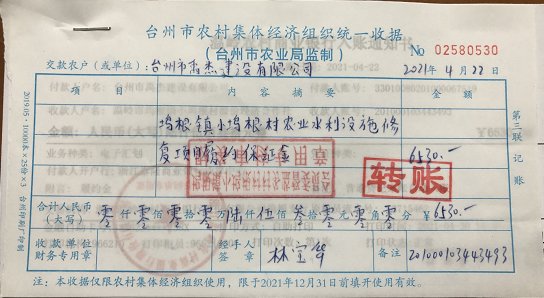 台州市农村集体经济组织统一收据
（台州市农业局监制）
No 02580530
交款农户（或单位）：台州市禹杰建设有限公司 2021年4月22日
项目 内容摘要 金额
坞根镇小坞根村农业水利设施修
复项目履约保证金 6530.—
转账
合计人民币（大写）零仟零佰零拾零万陆仟伍佰叁拾零元零角零分 ¥6530.—
收款单位财务专用章 经手人签章 林宝华 备注 201000103443493
注：本收据仅限农村集体经济组织使用，限于2021年12月31日前填开使用有效。
第三联 记账
2019.05·10000本×25份×3 台州印刷厂印制